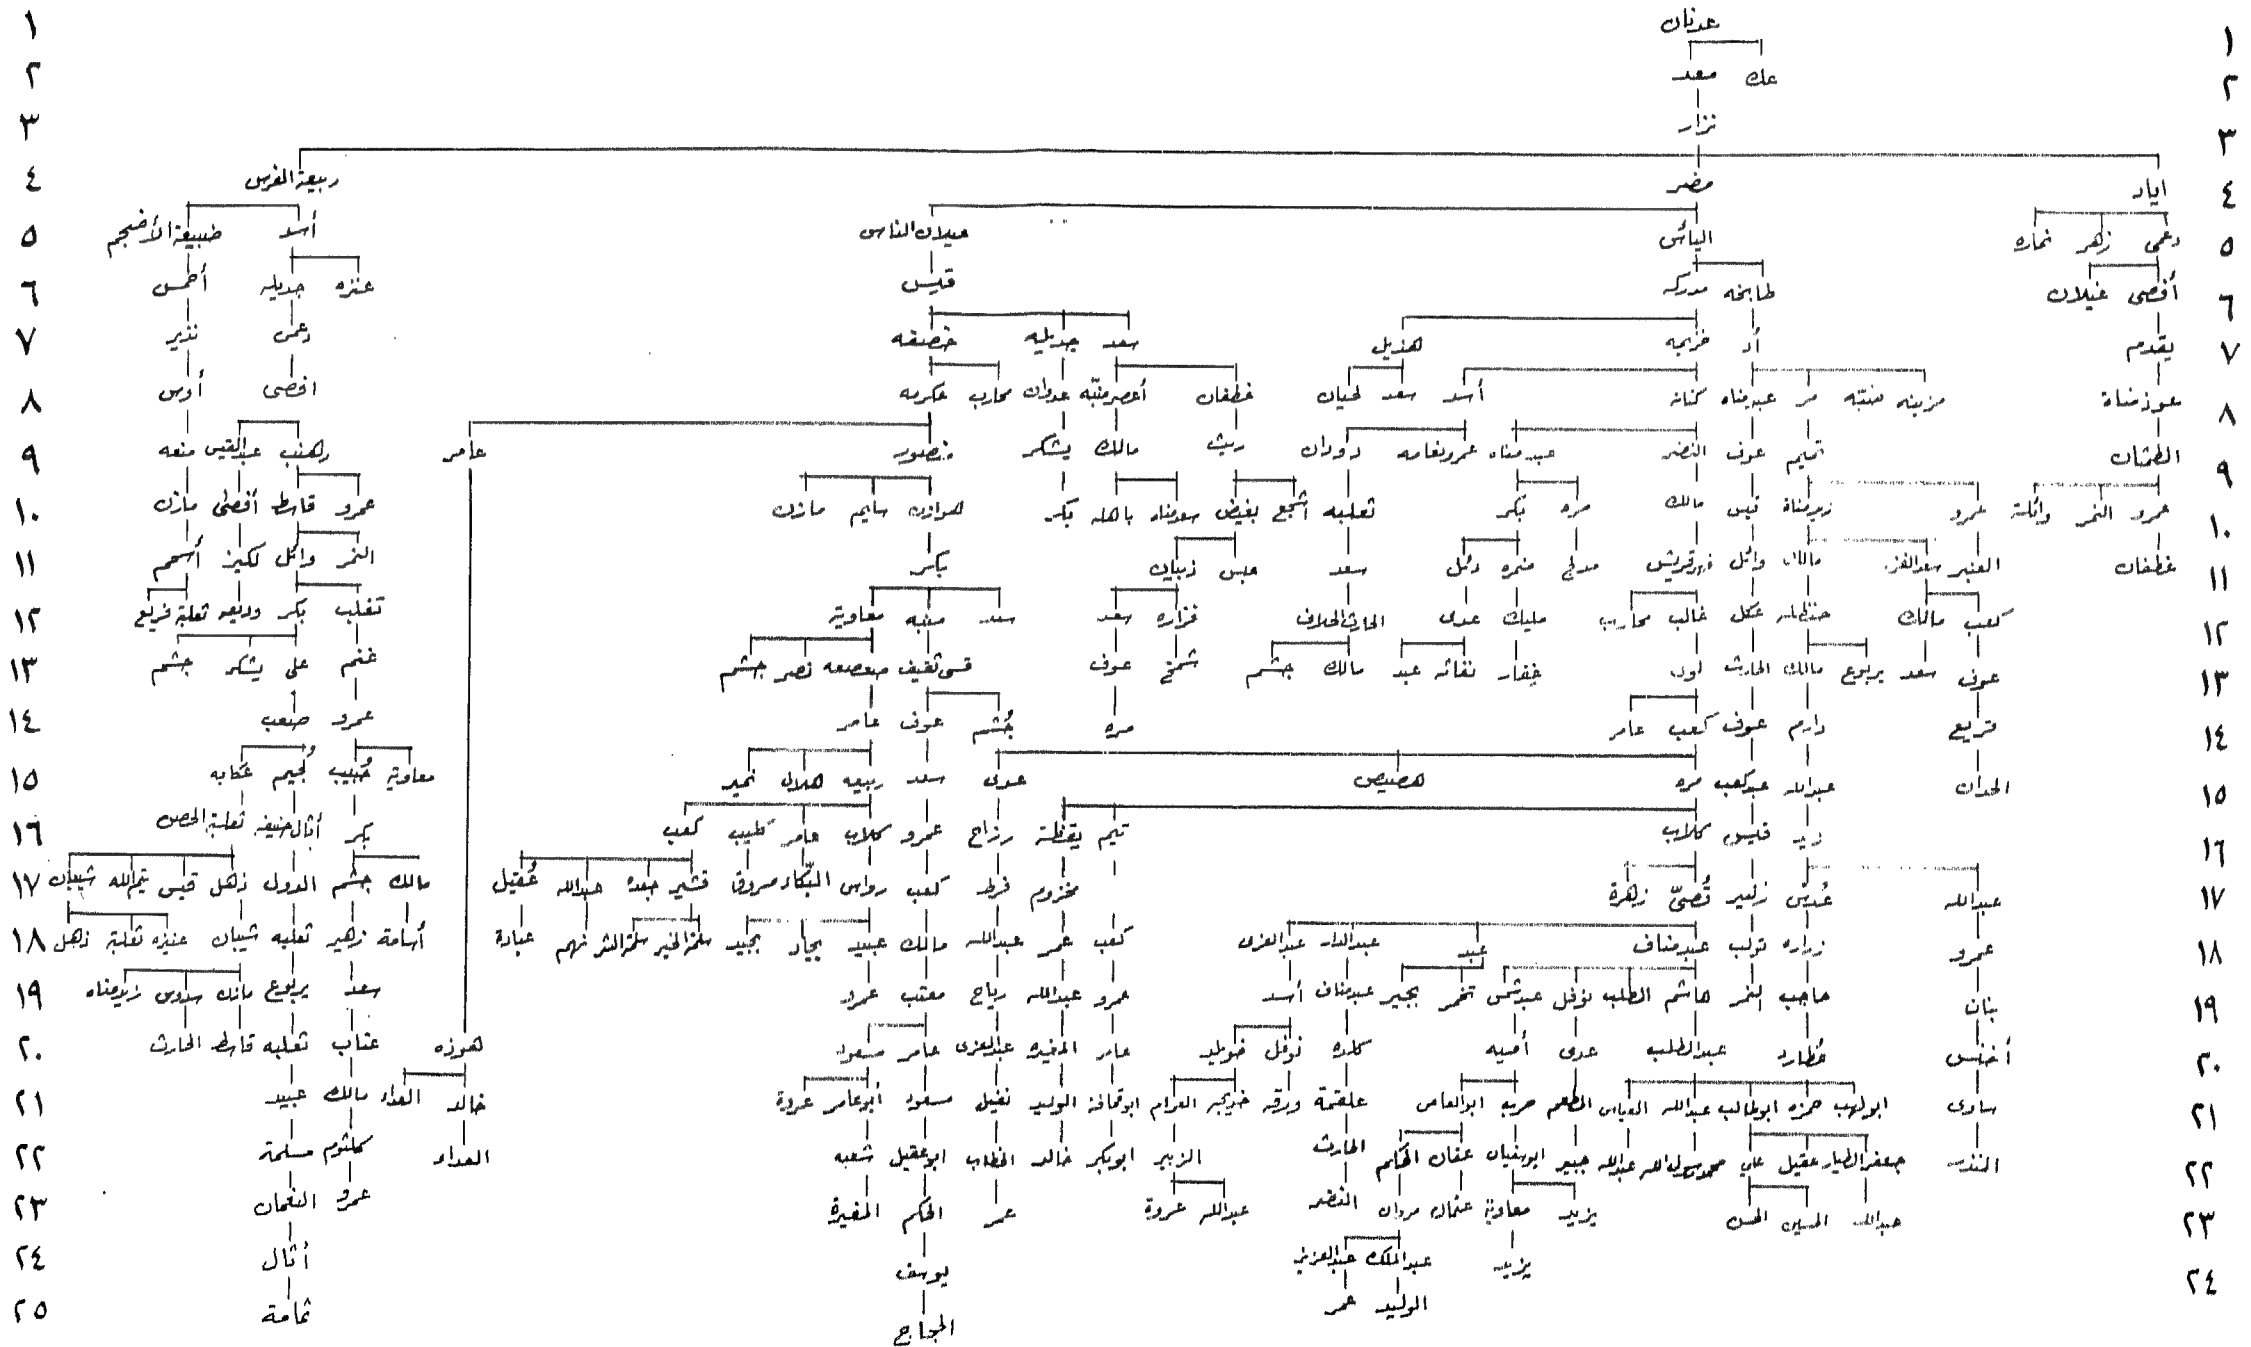 ١ عدنان ١
٢ عك معد ٢
٣ نزار ٣
٤ اياد مضر ربيعة الفرس ٤
٥ دعمى زهر نماره اليأس عيلان الناس أسد ضبيعة الأضجم ٥
٦ أفصى غيلان طابخه مدركه قيس عنزه جديله أحمس ٦
٧ يقدم أد خزيمه هذيل سعد جديله خصفه دعمى نذير ٧
٨ عوذ مناة مزينه منبّه مر عبد مناه كنانه أسد سعد لحيان غطفان أعصر منبّه عدوان محارب عكرمه افصى أوس ٨
٩ الطمثان تميم عوف النضر عبد مناه عمرو نعامه دودان ريث مالك يشكر منصور عامر هنب عبد القيس منعه ٩
١٠ عمرو النمر وائلة عمرو زيد مناة قيس مالك مره بكر ثعلبه أشجع بغيض سعد مناه باهله بكر هوازن سليم مازن عمرو قاسط أفصى مازن ١٠
١١ غطفان العنبر سعد الفزر مالك وائل فهر قريش مدلج ضمره دئل سعد عبس ذبيان بكر النمر وائل لكيز أسحم ١١
١٢ كعب مالك حنظله عكل غالب محارب مليك عدى الحارث الحلاف فزاره سعد سعد منبه معاوية تغلب بكر وديعه ثعلبة فريع ١٢
١٣ عوف سعد يربوع مالك الحارث لوى غفار نفاثه عبد مالك جشم شمخ عوف قسى ثقيف صعصعه نصر جشم غنم على يشكر جشم ١٣
١٤ قريع دارم عوف كعب عامر مره جُشم عوف عامر عمرو صعب ١٤
١٥ الحدان عبدالله عبد كعب مره هصيص عدى سعد ربيعه هلال نمير معاوية حُبيب لُجيم عكابه ١٥
١٦ زيد قيس كلاب تيم يقظة رزاح عمرو كلاب عامر كليب كعب بكر أثال حنيفه ثعلبة الحصن ١٦
١٧ عبدالله عُدس زهير قُصيّ زهرة مخزوم قرط كعب رواس البكّاء صروق قشير جعده عبدالله عُقيل مالك جشم الدول ذهل قيس تيم الله شيبان ١٧
١٨ عمرو زراره تولب عبد مناف عبد عبدالدار عبدالعزى كعب عمر عبدالله مالك عبيد بجاد بجيد سلمة الخير سلمة الشر نهم عبادة أسامة زهير ثعلبه شيبان عنيزه ثعلبة ذهل ١٨
١٩ بنان حاجب النمر هاشم المطلب نوفل عبد شمس تخمر بجير عبد مناف أسد عمرو عبدالله رياح معتب عمرو سعد يربوع مازن سدوس زيد مناه ١٩
٢٠ أخنس عُطارد عبدالمطلب عدى أميه كلده نوفل خويلد عامر المغيره عبدالعزى عامر مسعود هوذه عتاب ثعلبه قاسط الحارث ٢٠
٢١ ساوى ابو لهب حمزه ابو طالب عبدالله العباس المطعم حرب ابوالعاص علقمة ورقه خديجه العوام ابو قحافة الوليد نفيل مسعود أبو عامر عروة خالد العداء مالك عبيد ٢١
٢٢ المنذر جعفر الطيار عقيل علي محمد رسول الله عبدالله جبير ابوسفيان عفان الحكم الحارث الزبير ابوبكر خالد الخطاب ابو عقيل شعبه العداء كلثوم مسلمة ٢٢
٢٣ عبدالله الحسين الحسن يزيد معاوية عثمان مروان النضر عبدالله عروة عمر الحكم المغيرة عمرو النعمان ٢٣
٢٤ يزيد عبدالملك عبدالعزيز يوسف أثال ٢٤
الوليد عمر الحجاج ثمامة ٢٥